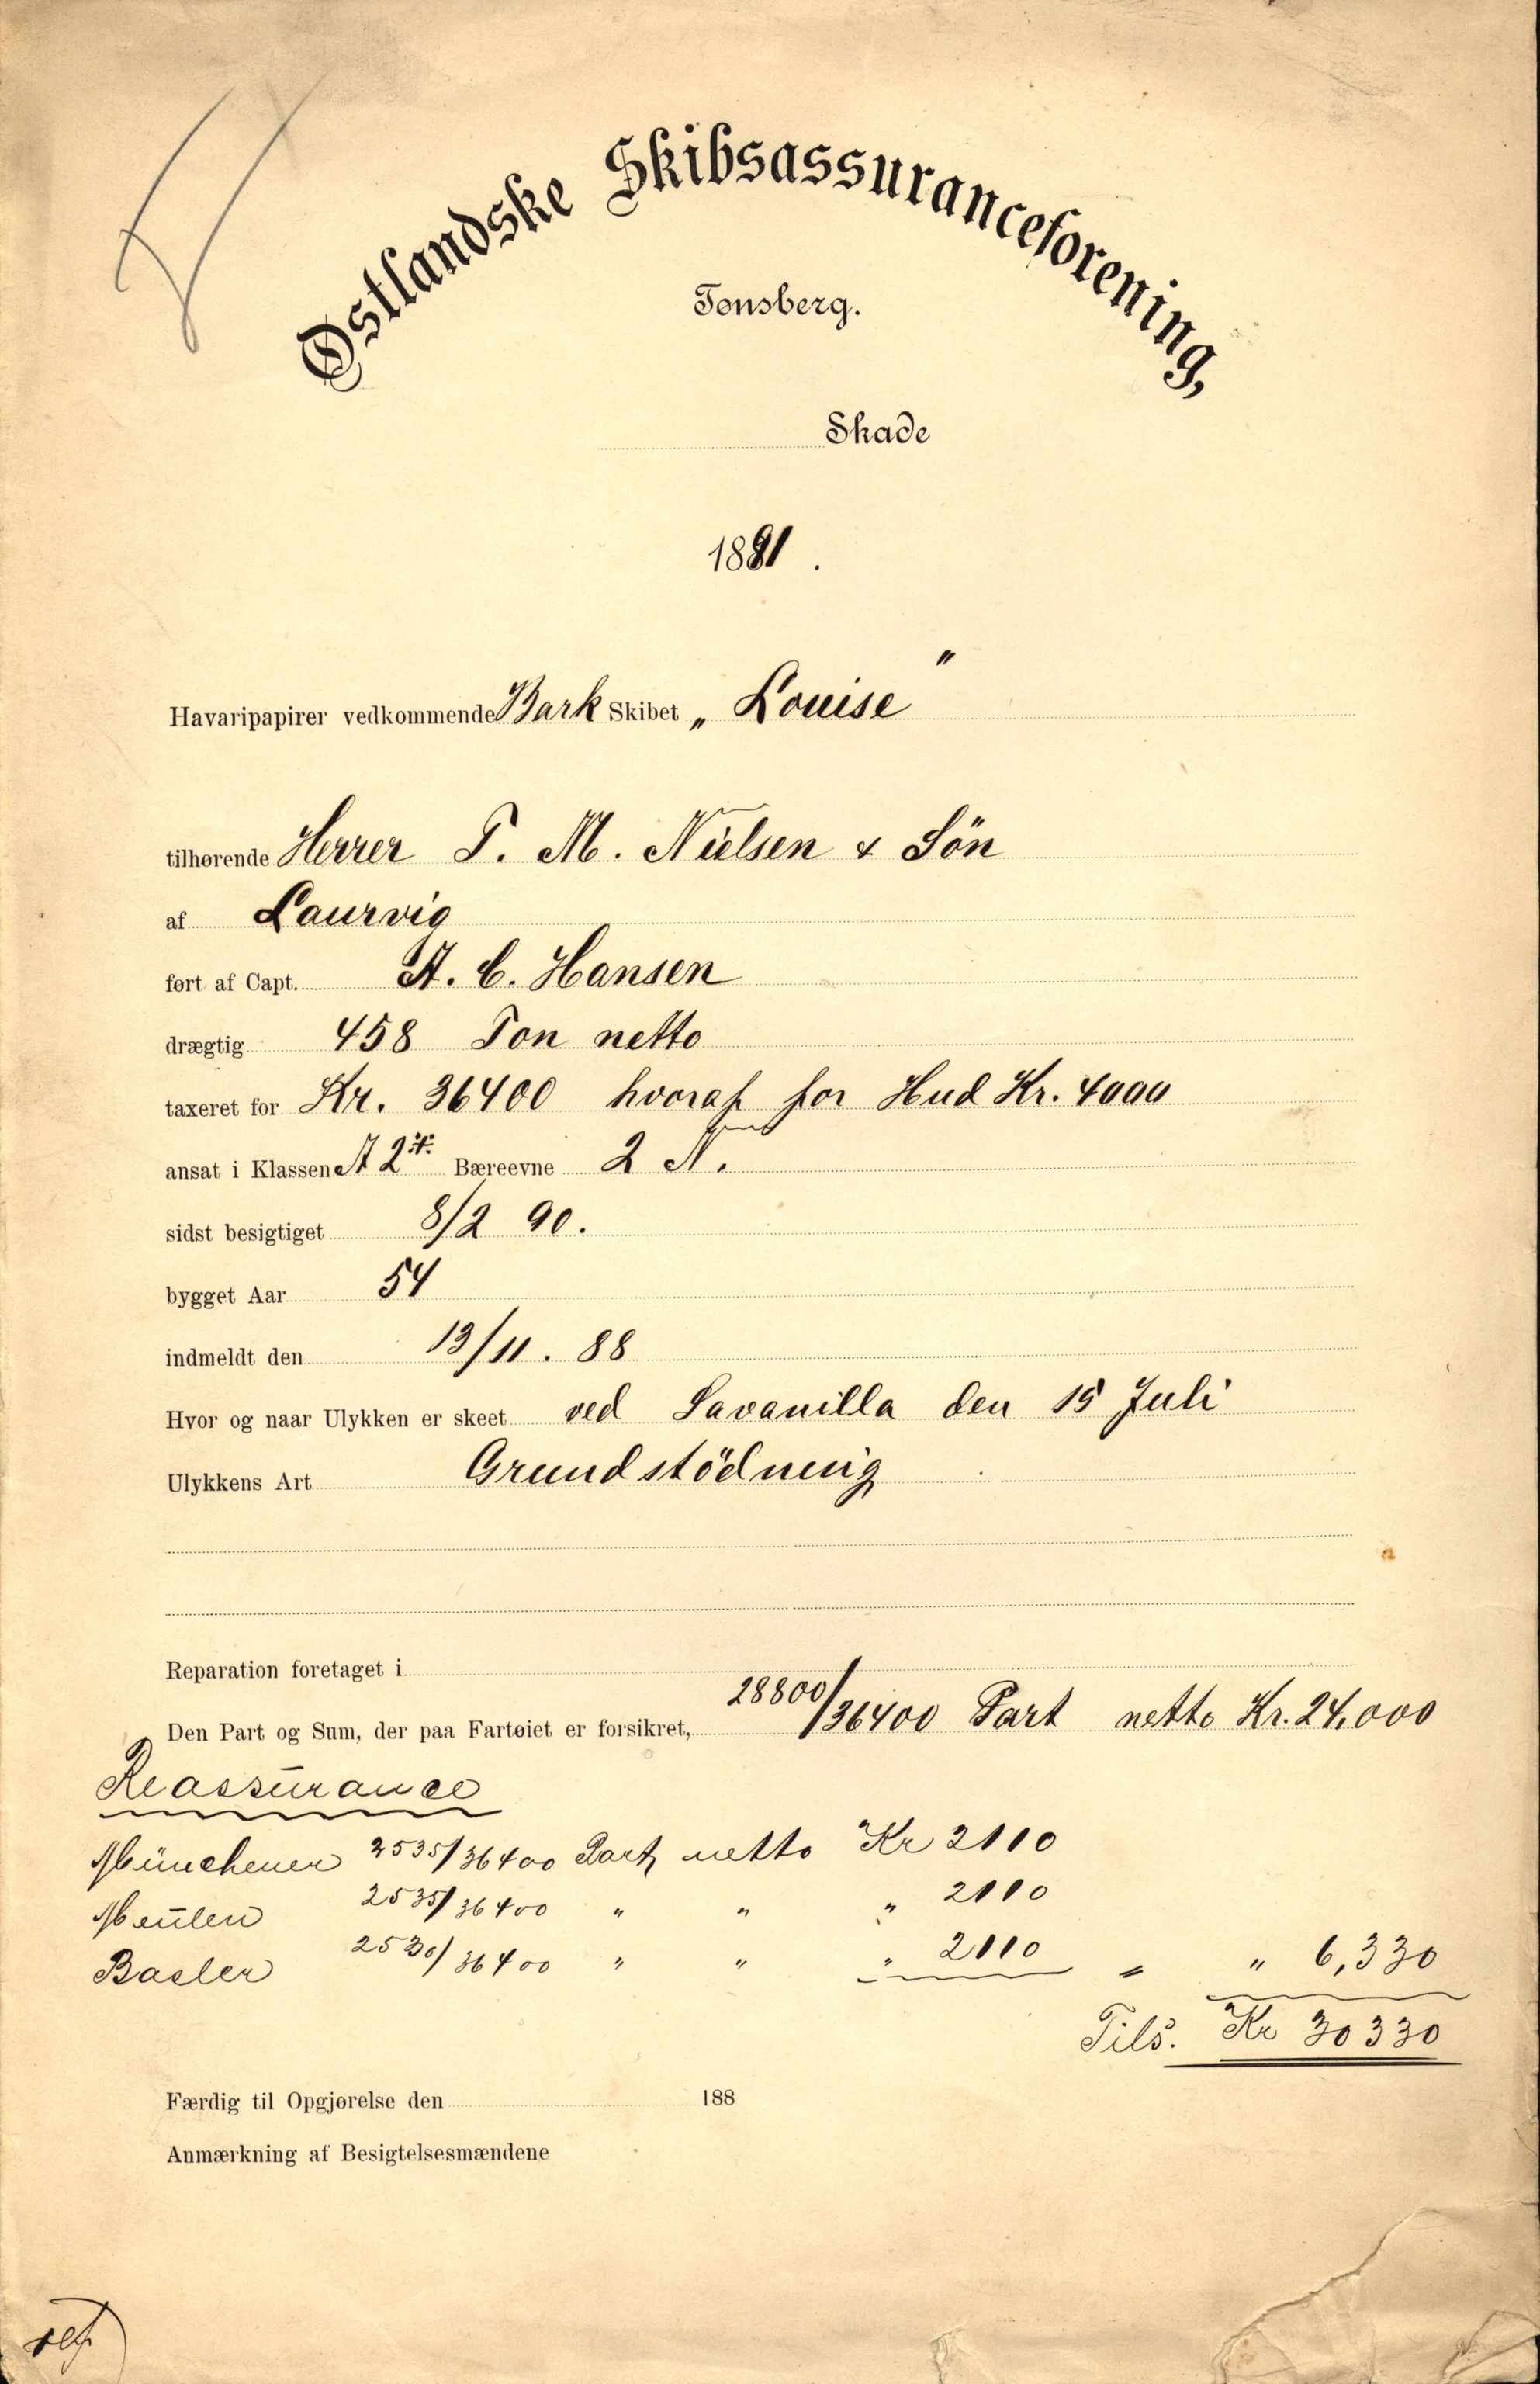 Østlandske Skibsassuranceforening,
Tønsberg.
Skade
1891.
Havaripapirer vedkommende Bark Skibet „ Louise "
tilhørende Herrer P. M. Nielsen & Sön
af Laurvig
ført af Capt. A. C. Hansen
drægtig 458 Ton netto
taxeret for Kr. 36400 hvoraf for Hud Kr. 4000
ansat i Klassen A 2 Bæreevne 2 N.
sidst besigtiget 8/2 90.
bygget Aar 54
indmeldt den 13/11. 88
Hvor og naar Ulykken er skeet ved Savanilla den 15 Juli
Ulykkens Art Grundstödning
Reparation foretaget i
Den Part og Sum, der paa Fartøiet er forsikret, 28800/36400 Part netto Kr. 24,000
Reassurance
Münchener 2535/36400 Part netto Kr 2110
2535/36400 " " " 2110
Basler 2530/36400 " " " 2110 = " 6,330
Tils. Kr 30330
Færdig til Opgjørelse den 188
Anmærkning af Besigtelsesmændene